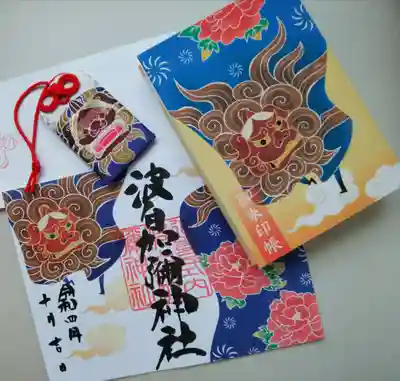 御朱印帳
波自加彌神社
令和四年
十月吉日